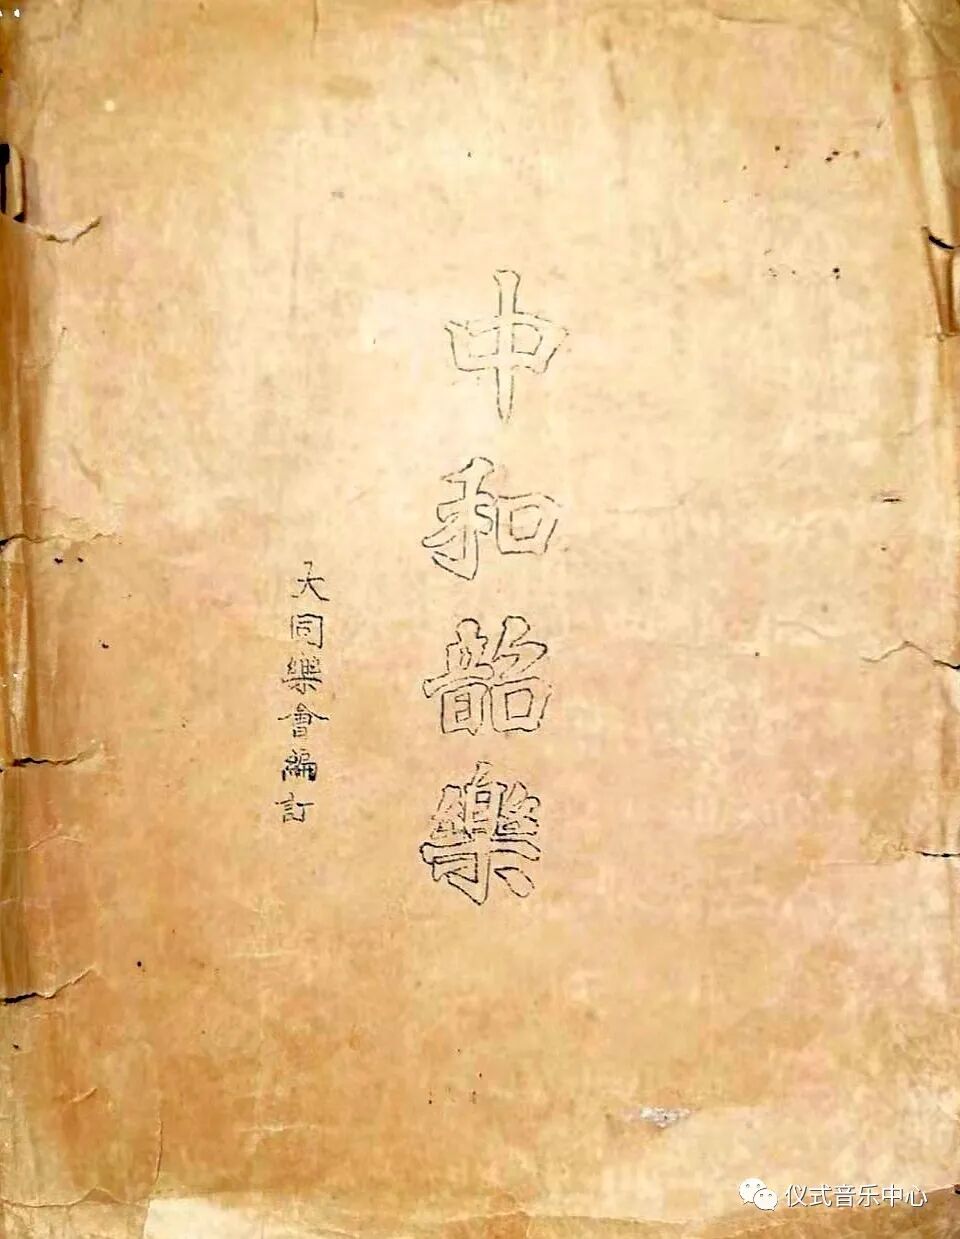 中和韶樂
大同樂會編訂
仪式音乐中心